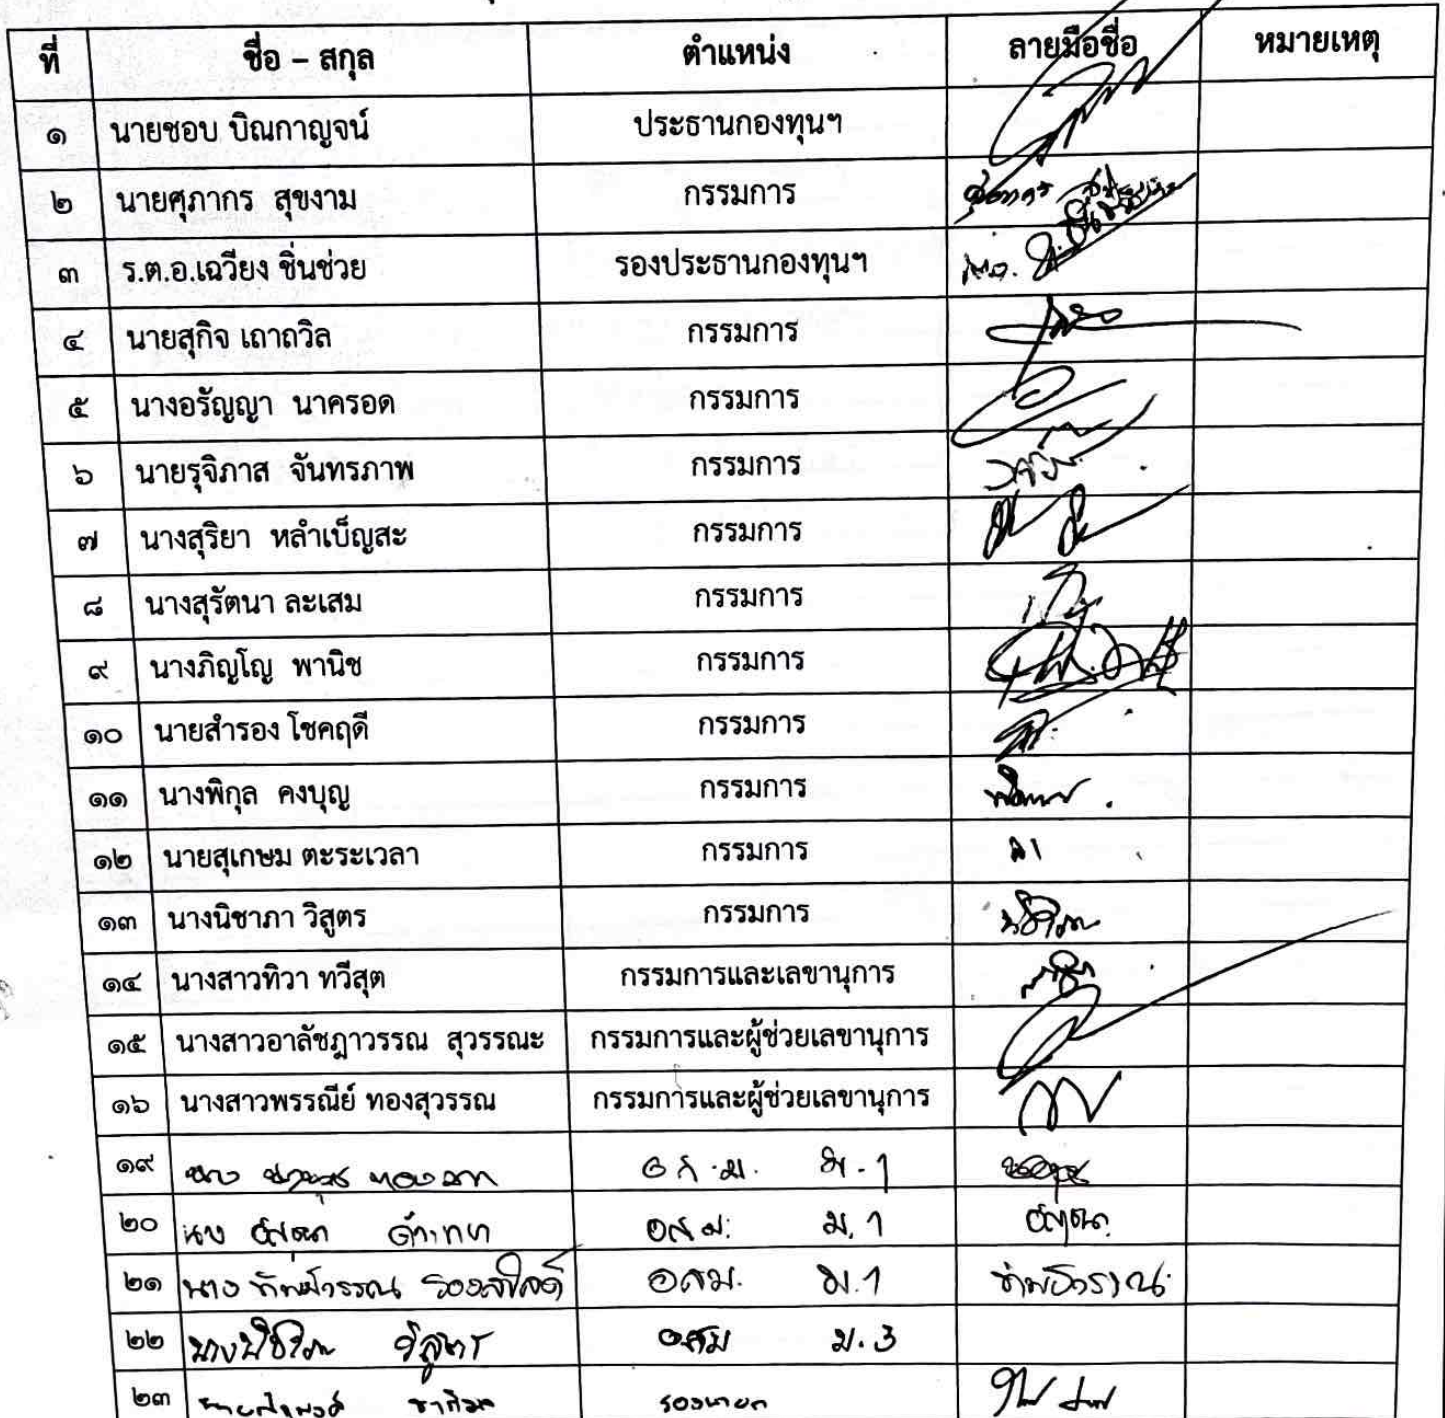 ที่ ชื่อ – สกุล ตำแหน่ง ลายมือชื่อ หมายเหตุ
๑ นายชอบ บิณกาญจน์ ประธานกองทุนฯ
๒ นายศุภากร สุขงาม กรรมการ
๓ ร.ต.อ.เฉวียง ชิ่นช่วย รองประธานกองทุนฯ
๔ นายสุกิจ เถาถวิล กรรมการ
๕ นางอรัญญา นาครอด กรรมการ
๖ นายรุจิภาส จันทรภาพ กรรมการ
๗ นางสุริยา หลำเบ็ญสะ กรรมการ
๘ นางสุรัตนา ละเสม กรรมการ
๙ นางภิญโญ พานิช กรรมการ
๑๐ นายสำรอง โชคฤดี กรรมการ
๑๑ นางพิกุล คงบุญ กรรมการ
๑๒ นายสุเกษม ตะระเวลา กรรมการ
๑๓ นางนิชาภา วิสูตร กรรมการ
๑๔ นางสาวทิวา ทวีสุต กรรมการและเลขานุการ
๑๕ นางสาวอาลัชฎาวรรณ สุวรรณะ กรรมการและผู้ช่วยเลขานุการ
๑๖ นางสาวพรรณีย์ ทองสุวรรณ กรรมการและผู้ช่วยเลขานุการ
๑๙ นาง อส.ม. ม.1
๒๐ นาง อสม. ม.1
๒๑ นาง ทิพย์วรรณ อสม. ม.1
๒๒ นางนิชาภา วิสูตร อสม ม.3
๒๓ รองนายก